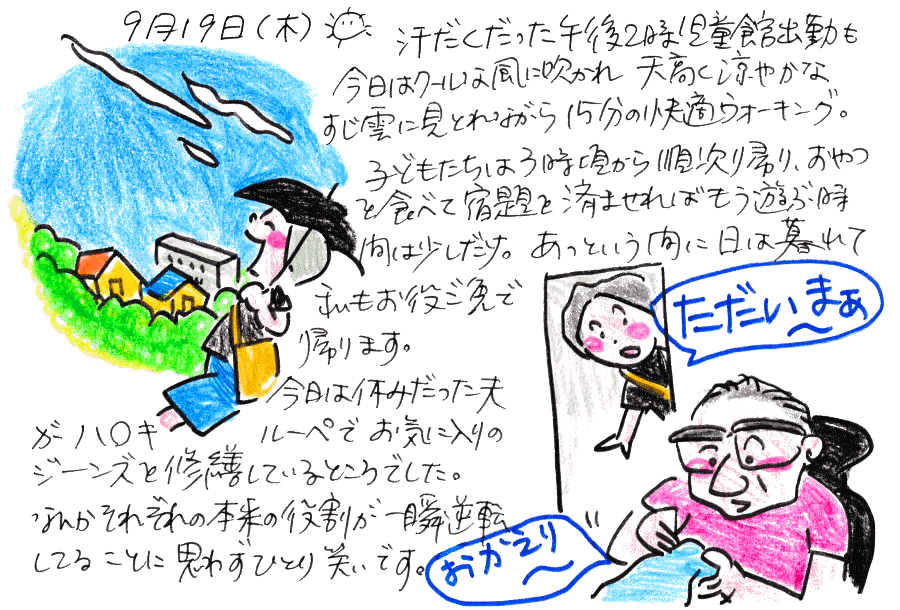 9月19日(木)
汗だくだった午後2時児童館出勤も
今日はクールな風に吹かれ 天高く涼やかな
すじ雲に見とれながら15分の快適ウォーキング。
子どもたちは3時頃から順次り帰り、おやつ
を食べて宿題を済ませればもう遊ぶ時
間は少しだけ。あっという間に日は暮れて
私もお役ご免で
帰ります。
今日は休みだった夫
がハ〇キルーペでお気に入りの
ジーンズを修繕しているところでした。
なんかそれぞれの本来の役割が一瞬逆転
してることに思わずひとり笑いです。
ただいまぁ〜
おかえり〜